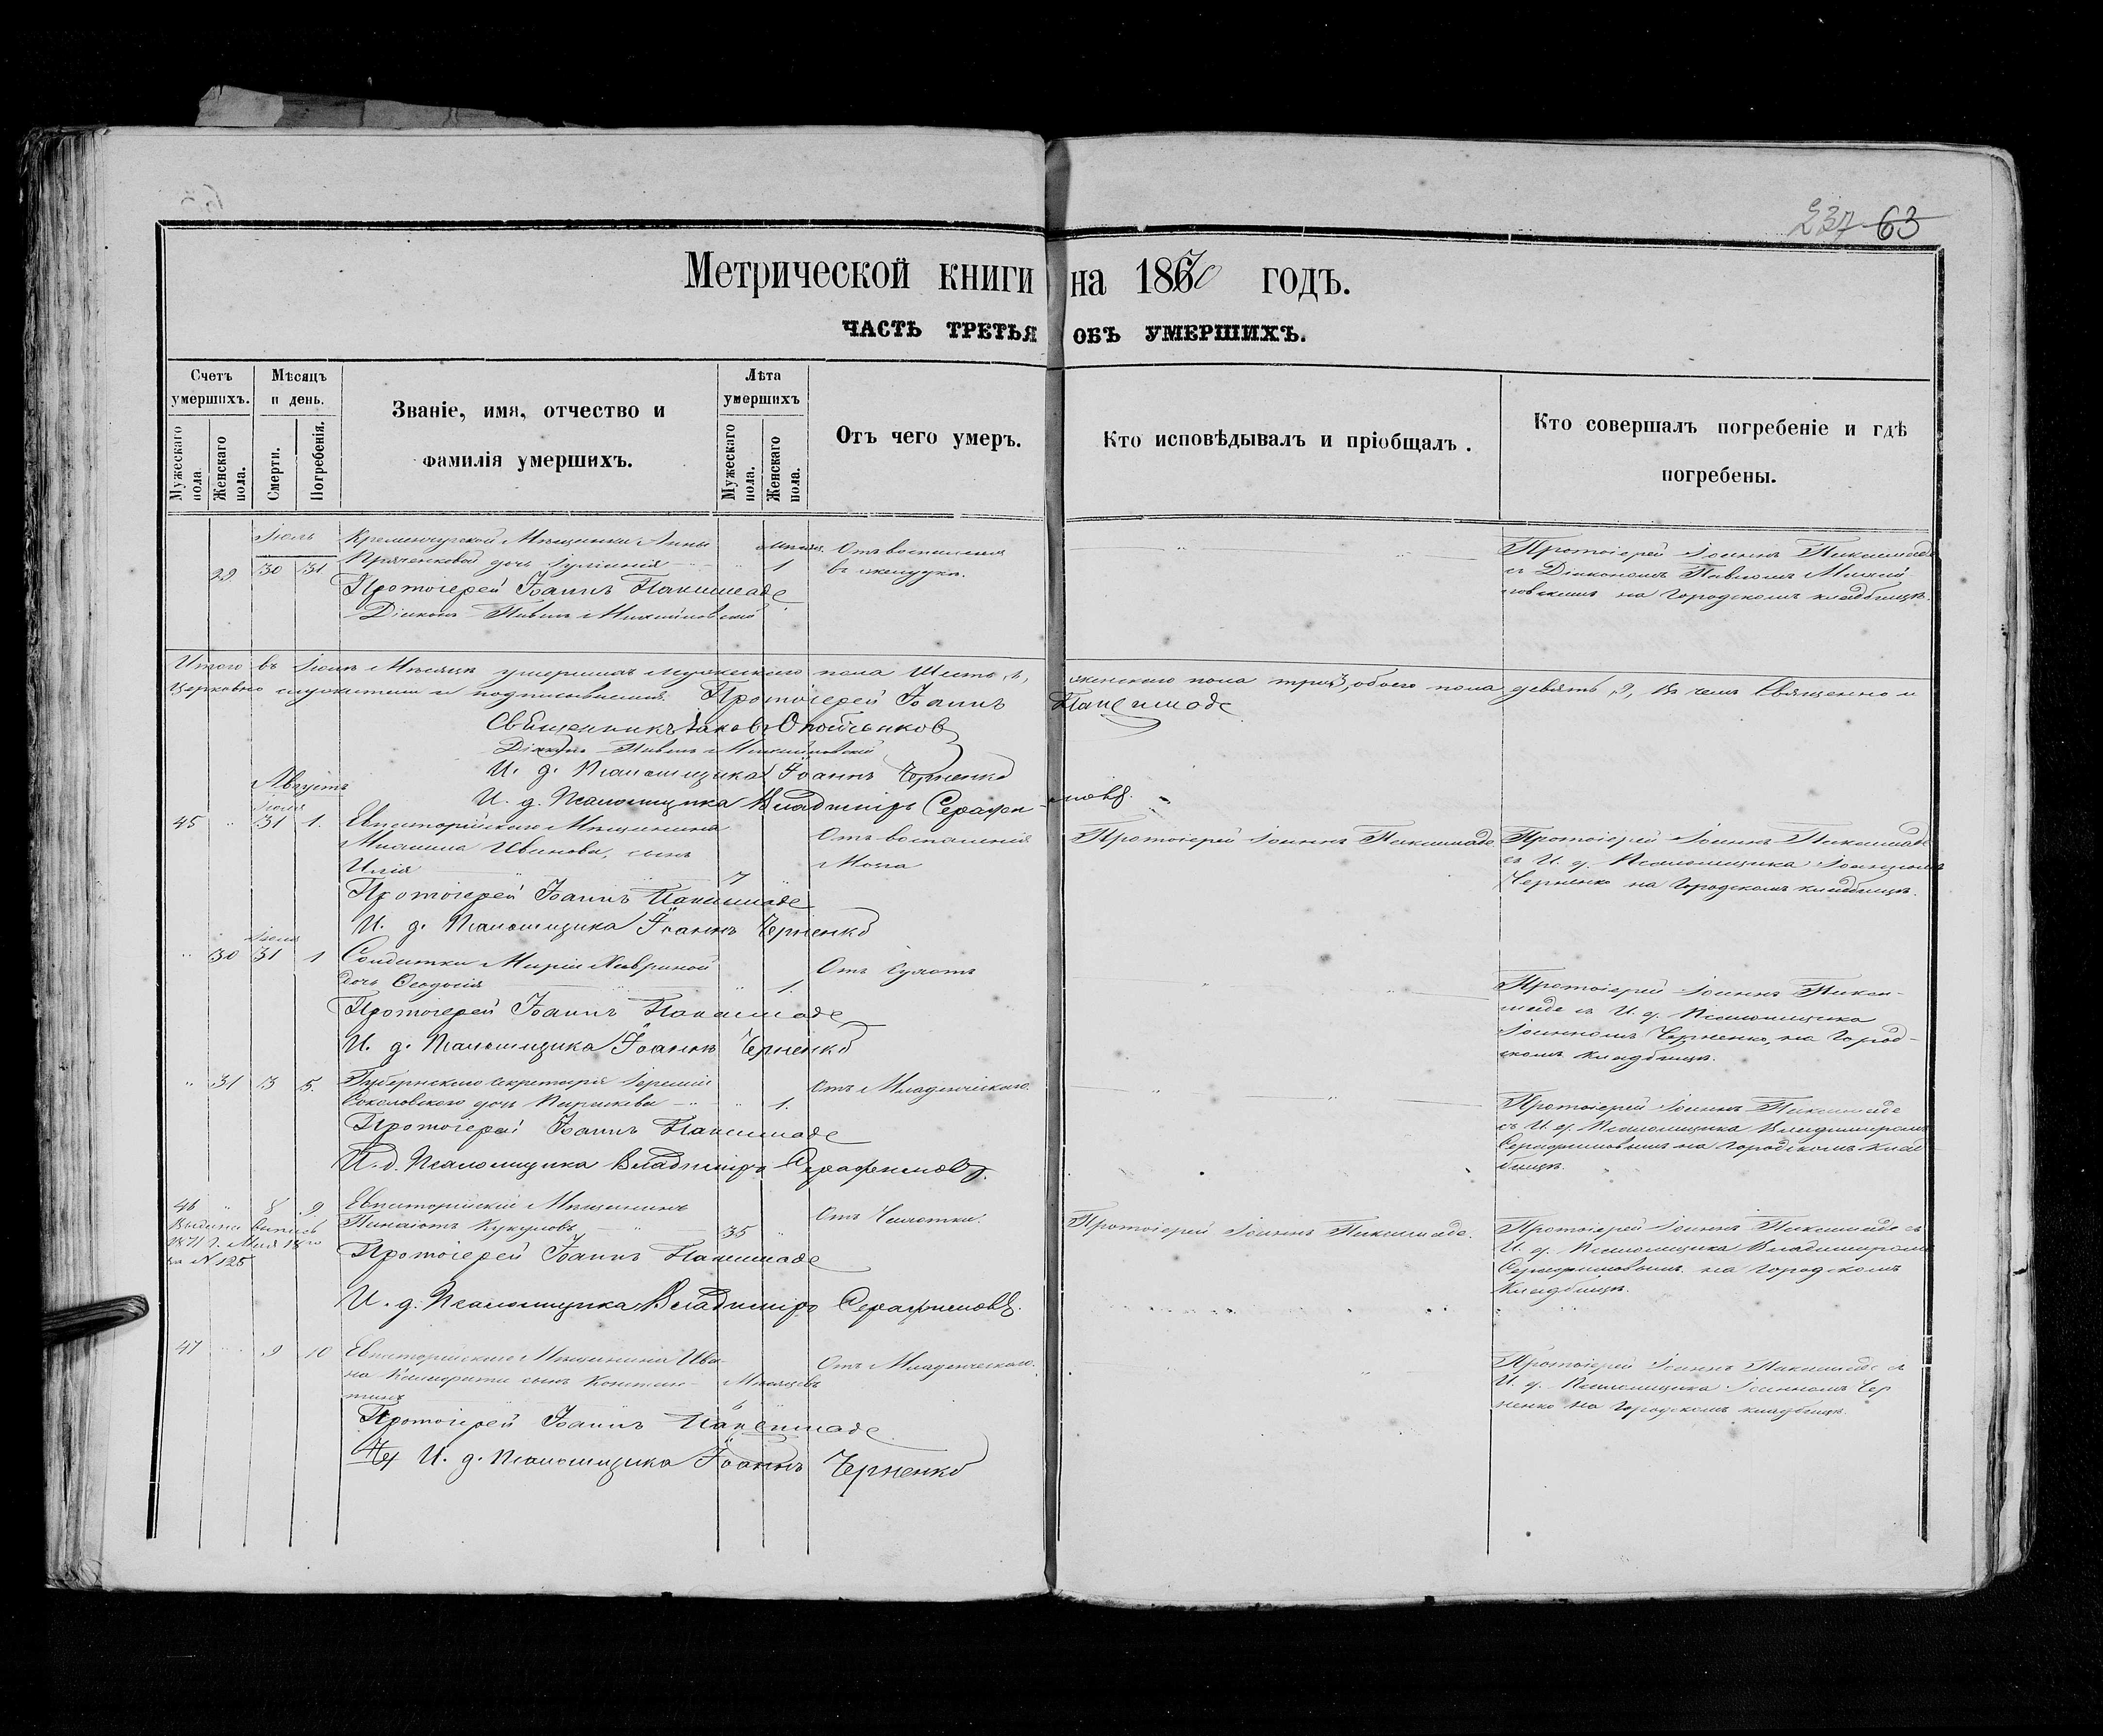 237 63
Метрической книги на 1870 годъ.
ЧАСТЬ ТРЕТЬЯ ОБЪ УМЕРШИХЪ.
Счетъ умершихъ.
Мѣсяцъ и день.
Званіе, имя, отчество и фамилія умершихъ.
Лѣта умершихъ
Отъ чего умеръ.
Кто исповѣдывалъ и пріобщалъ.
Кто совершалъ погребеніе и гдѣ погребены.
Мужескаго пола.
Женскаго пола.
Смерти.
Погребенія.
Мужескаго пола.
Женскаго пола.
Іюль
29 30 31
Кременчугской Мѣщанки Анны
дочь Іуліанія
1
Отъ воспаленія
въ желудкѣ.
Протоіерей Іоаннъ
съ Діакономъ Павломъ Михай-
ловскимъ на Городскомъ кладбищѣ.
Протоіерей Іоаннъ
Діаконъ Павелъ Михайловскій
Итого въ Іюлѣ Мѣсяцѣ умершихъ мужескаго пола Шесть 6, женскаго пола три 3, обоего пола девять 9, Въ чемъ Священно и
церковно служители и подписываемся. Протоіерей Іоаннъ
Священникъ Іаковъ
Діаконъ Павелъ Михайловскій
И. д. Псаломщика Іоаннъ Черненко
И. д. Псаломщика Владиміръ Серафимовъ.
Августъ
Іюля
45 " 31 1.
Евпаторійскаго Мѣщанина
Иванова, сынъ
Илія
7
Отъ воспаленія
Мозга
Протоіерей Іоаннъ
Протоіерей Іоаннъ
съ И. д. Псаломщика Іоанномъ
Черненко на Городскомъ кладбищѣ.
Протоіерей Іоаннъ
И. д. Псаломщика Іоаннъ Черненко
Іюля
" 30 31 1
Солдатки Маріи
дочь Ѳеодосія
1.
Отъ
Протоіерей Іоаннъ
съ И. д. Псаломщика
Іоанномъ Черненко, на Город-
скомъ кладбищѣ.
Протоіерей Іоаннъ
И. д. Псаломщика Іоаннъ Черненко
" 31 3 5.
Губернскаго Секретаря Іереміи
Соколовскаго дочь Параскева
1.
Отъ Младенческаго.
Протоіерей Іоаннъ
съ И. д. Псаломщика Владиміромъ
Серафимовымъ на Городскомъ Клад-
бищѣ.
Протоіерей Іоаннъ
И. д. Псаломщика Владиміръ Серафимовъ.
46 " 8 9
Евпаторійскій Мѣщанинъ
Панаіотъ Кукуловъ
35
Отъ Чахотки.
Протоіерей Іоаннъ
Протоіерей Іоаннъ
И. д. Псаломщика Владиміромъ
Серафимовымъ на Городскомъ
Кладбищѣ.
Выдана выпись
1871 г. Мая 18го
за N 125
Протоіерей Іоаннъ
И. д. Псаломщика Владиміръ Серафимовъ.
47 " 9 10
Евпаторійскаго Мѣщанина Ива-
на сынъ Констан-
тинъ
Мѣсяцевъ
6
Отъ Младенческаго.
Протоіерей Іоаннъ
И. д. Псаломщика Іоанномъ Чер-
ненко на Городскомъ кладбищѣ.
Протоіерей Іоаннъ
И. д. Псаломщика Іоаннъ Черненко